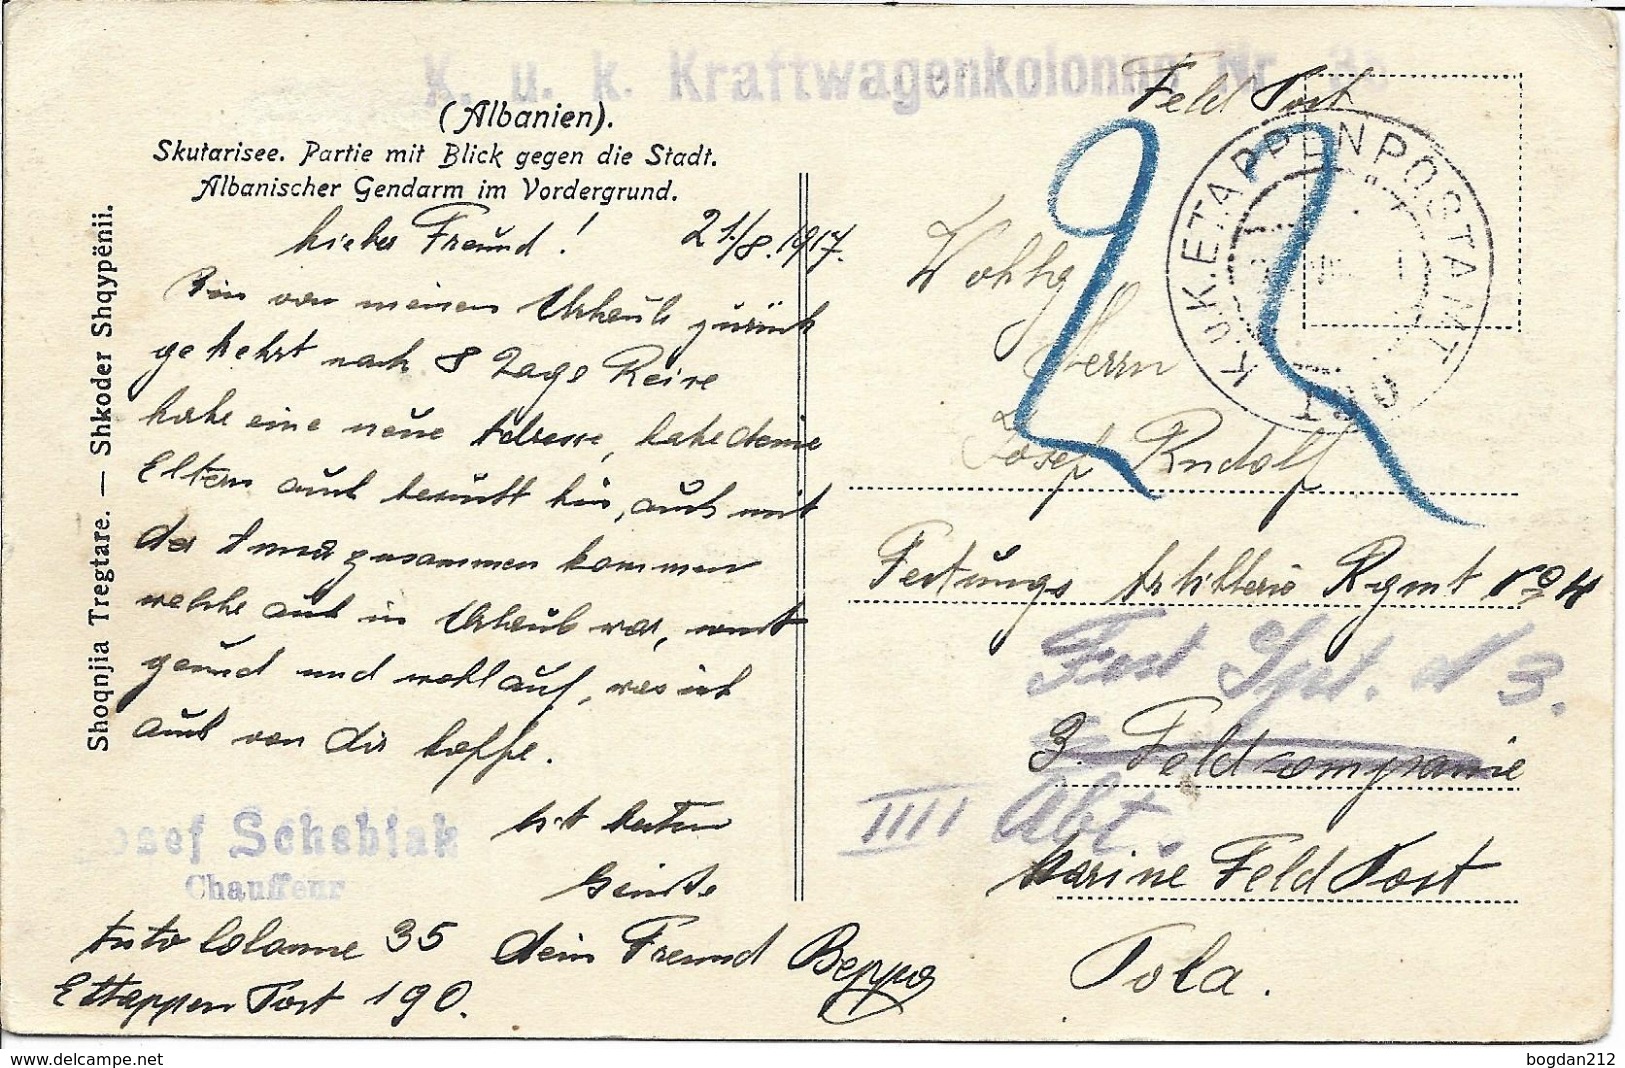 K. u. k. Kraftwagenkolonne Nr. 35
(Albanien).
Skutarisee. Partie mit Blick gegen die Stadt.
Albanischer Gendarm im Vordergrund.
Shoqnjia Tregtare. — Shkoder Shqypënii.
Lieber Freund! 21./8.1917.
Bin von meinen Urlaub zurück
gekehrt nach 8 Tage Reise
habe eine neue Adresse, habe deine
Eltern auch besucht hin, auch mit
der Anna zusammen kommen
welche auch in Urlaub war, sonst
gesund und wohlauf, was ich
auch von dir hoffe.
Mit besten
Grüße
dein Freund Beppo
Josef Schebiak
Chauffeur
Auto Colonne 35
Ettappen Post 190.
Feld Post
K.u.K. ETAPPENPOSTAMT
Wohlg
Herrn
Josef Rudolf
Festungs Artillerie Rgmt No 4
Fest Spt. d 3.
3. Feldcompanie
IIII Abt.
Marine Feld Post
Pola.
bogdan212
www.delcampe.net